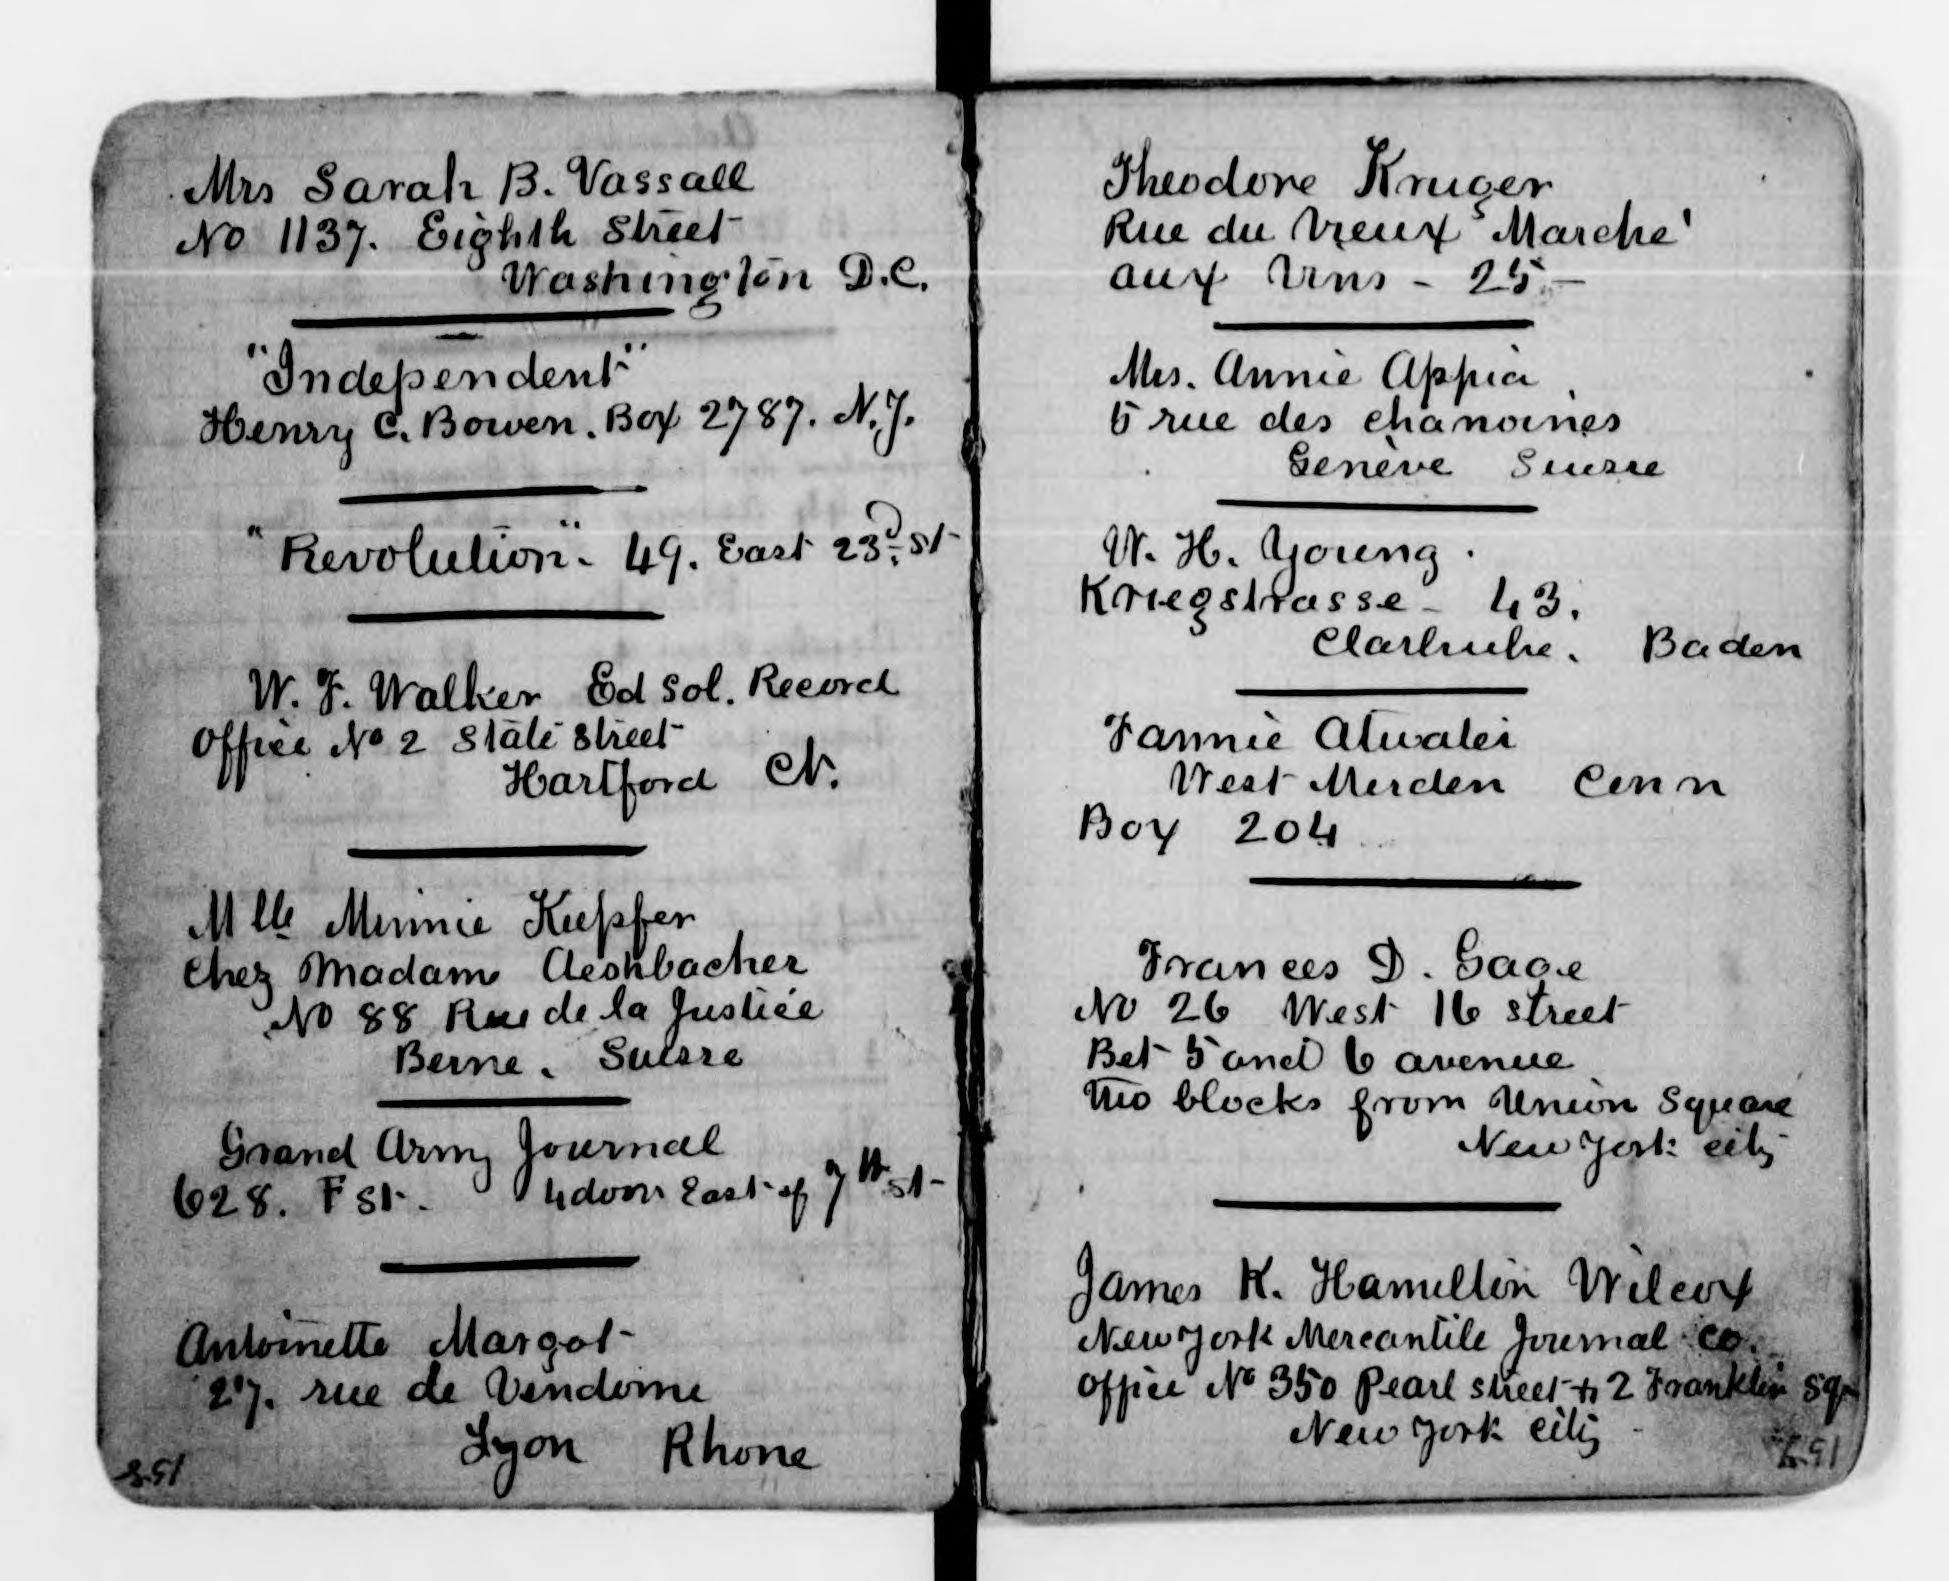 Mrs Sarah B. Vassall
No 1137. Eighth Street
Washington D.C.
"Independent"
Henry C. Bowen. Box 2787. N.Y.
"Revolution". 49. East 23d. St
W. F. Walker Ed Sol. Record
Office No 2 State Street
Hartford Ct.
Mlle Minnie Kupfer
chez Madam Aeshbacher
No 88 Rue de la Justice
Berne. Suisse
Grand Army Journal
628. F St. 4 doors East of 7th St
Antoinette Margot
27. rue de Vendome
Lyon Rhone
Theodore Kruger
Rue du Vieux Marché
aux Vins - 25 -
Mrs. Annie Appia
5 rue des chanoines
Genève Suisse
W. H. Young.
Kriegstrasse - 43.
Carlsruhe. Baden
Fannie Atwater
West Meriden Conn
Box 204
Frances D. Gage
No 26 West 16 Street
Bet 5 and 6 avenue
two blocks from Union Square
New York city
James K. Hamilton Wilcox
New York Mercantile Journal Co.
Office No 350 Pearl street & 2 Franklin Sqr
New York city